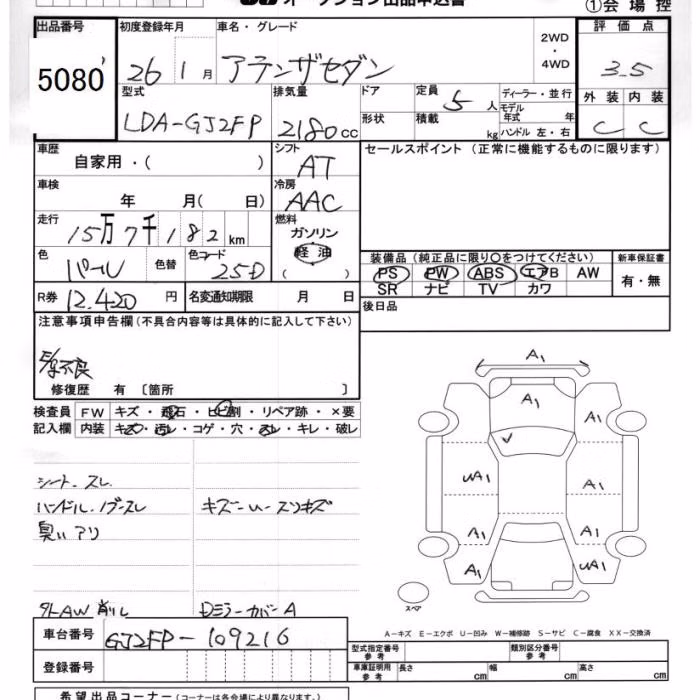 オークション出品申込書
①会場控
出品番号 初度登録年月 車名・グレード 評価点
5080
26 1月 アテンザセダン 2WD・4WD 3.5
型式 排気量 ドア 定員 5人 ディーラー・並行 外装 内装
モデル年式 年
LDA-GJ2FP 2180cc 形状 積載 kg ハンドル 左・右 C C
車歴 自家用・( ) シフト AT セールスポイント(正常に機能するものに限ります)
車検 年 月( 日) 冷房 AAC
走行 15万7千182km 燃料 ガソリン 軽油 ( )
色 パール 色替 色コード 25D
装備品(純正品に限り○をつけてください) 新車保証書
PS PW ABS エアB AW 有・無
SR ナビ TV カワ
R券 12,420円 名変通知期限 月 日 後日品
注意事項申告欄(不具合内容等は具体的に記入して下さい)
不良
修復歴 有 〔箇所 〕
検査員 FW キズ・飛石・ヒビ割・リペア跡・×要
記入欄 内装 キズ・汚レ・コゲ・穴・スレ・キレ・破レ
シート、スレ
ハンドル、ノブスレ キズ
臭いアリ
AW 削レ Dミラーカバー A
A1
A1
A1
UA1 A1
A1 A1
A1 UA1
スペア
A-キズ E-エクボ U-凹み W-補修跡 S-サビ C-腐食 XX-交換済
車台番号 GJ2FP-109216
型式指定番号 参考 類別区分番号 参考
登録番号 車庫証明用 参考 長さ cm 幅 cm 高さ cm
希望出品コーナー(コーナーは各会場により異なります。)